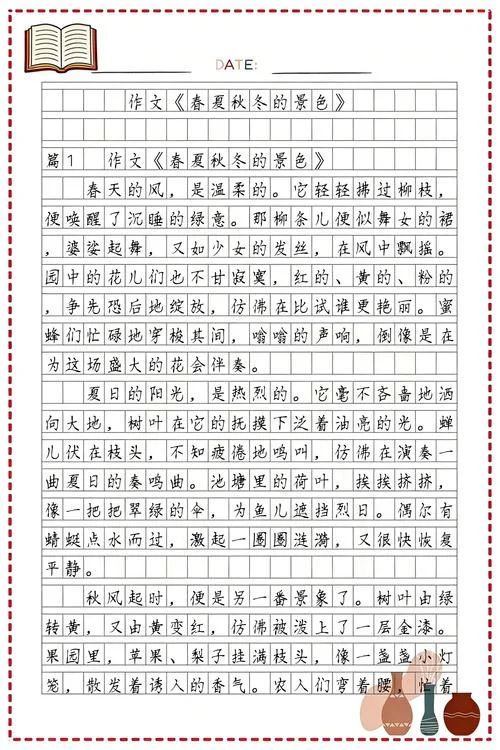 DATE:
作文《春夏秋冬的景色》
篇1 作文《春夏秋冬的景色》
春天的风，是温柔的。它轻轻拂过柳枝，
便唤醒了沉睡的绿意。那柳条儿便似舞女的裙
，婆娑起舞，又如少女的发丝，在风中飘摇。
园中的花儿们也不甘寂寞，红的、黄的、粉的
，争先恐后地绽放，仿佛在比试谁更艳丽。蜜
蜂们忙碌地穿梭其间，嗡嗡的声响，倒像是在
为这场盛大的花会伴奏。
夏日的阳光，是热烈的。它毫不吝啬地洒
向大地，树叶在它的抚摸下泛着油亮的光。蝉
儿伏在枝头，不知疲倦地鸣叫，仿佛在演奏一
曲夏日的奏鸣曲。池塘里的荷叶，挨挨挤挤，
像一把把翠绿的伞，为鱼儿遮挡烈日。偶尔有
蜻蜓点水而过，激起一圈圈涟漪，又很快恢复
平静。
秋风起时，便是另一番景象了。树叶由绿
转黄，又由黄变红，仿佛被泼上了一层金漆。
果园里，苹果、梨子挂满枝头，像一盏盏小灯
笼，散发着诱人的香气。农人们弯着腰，忙着